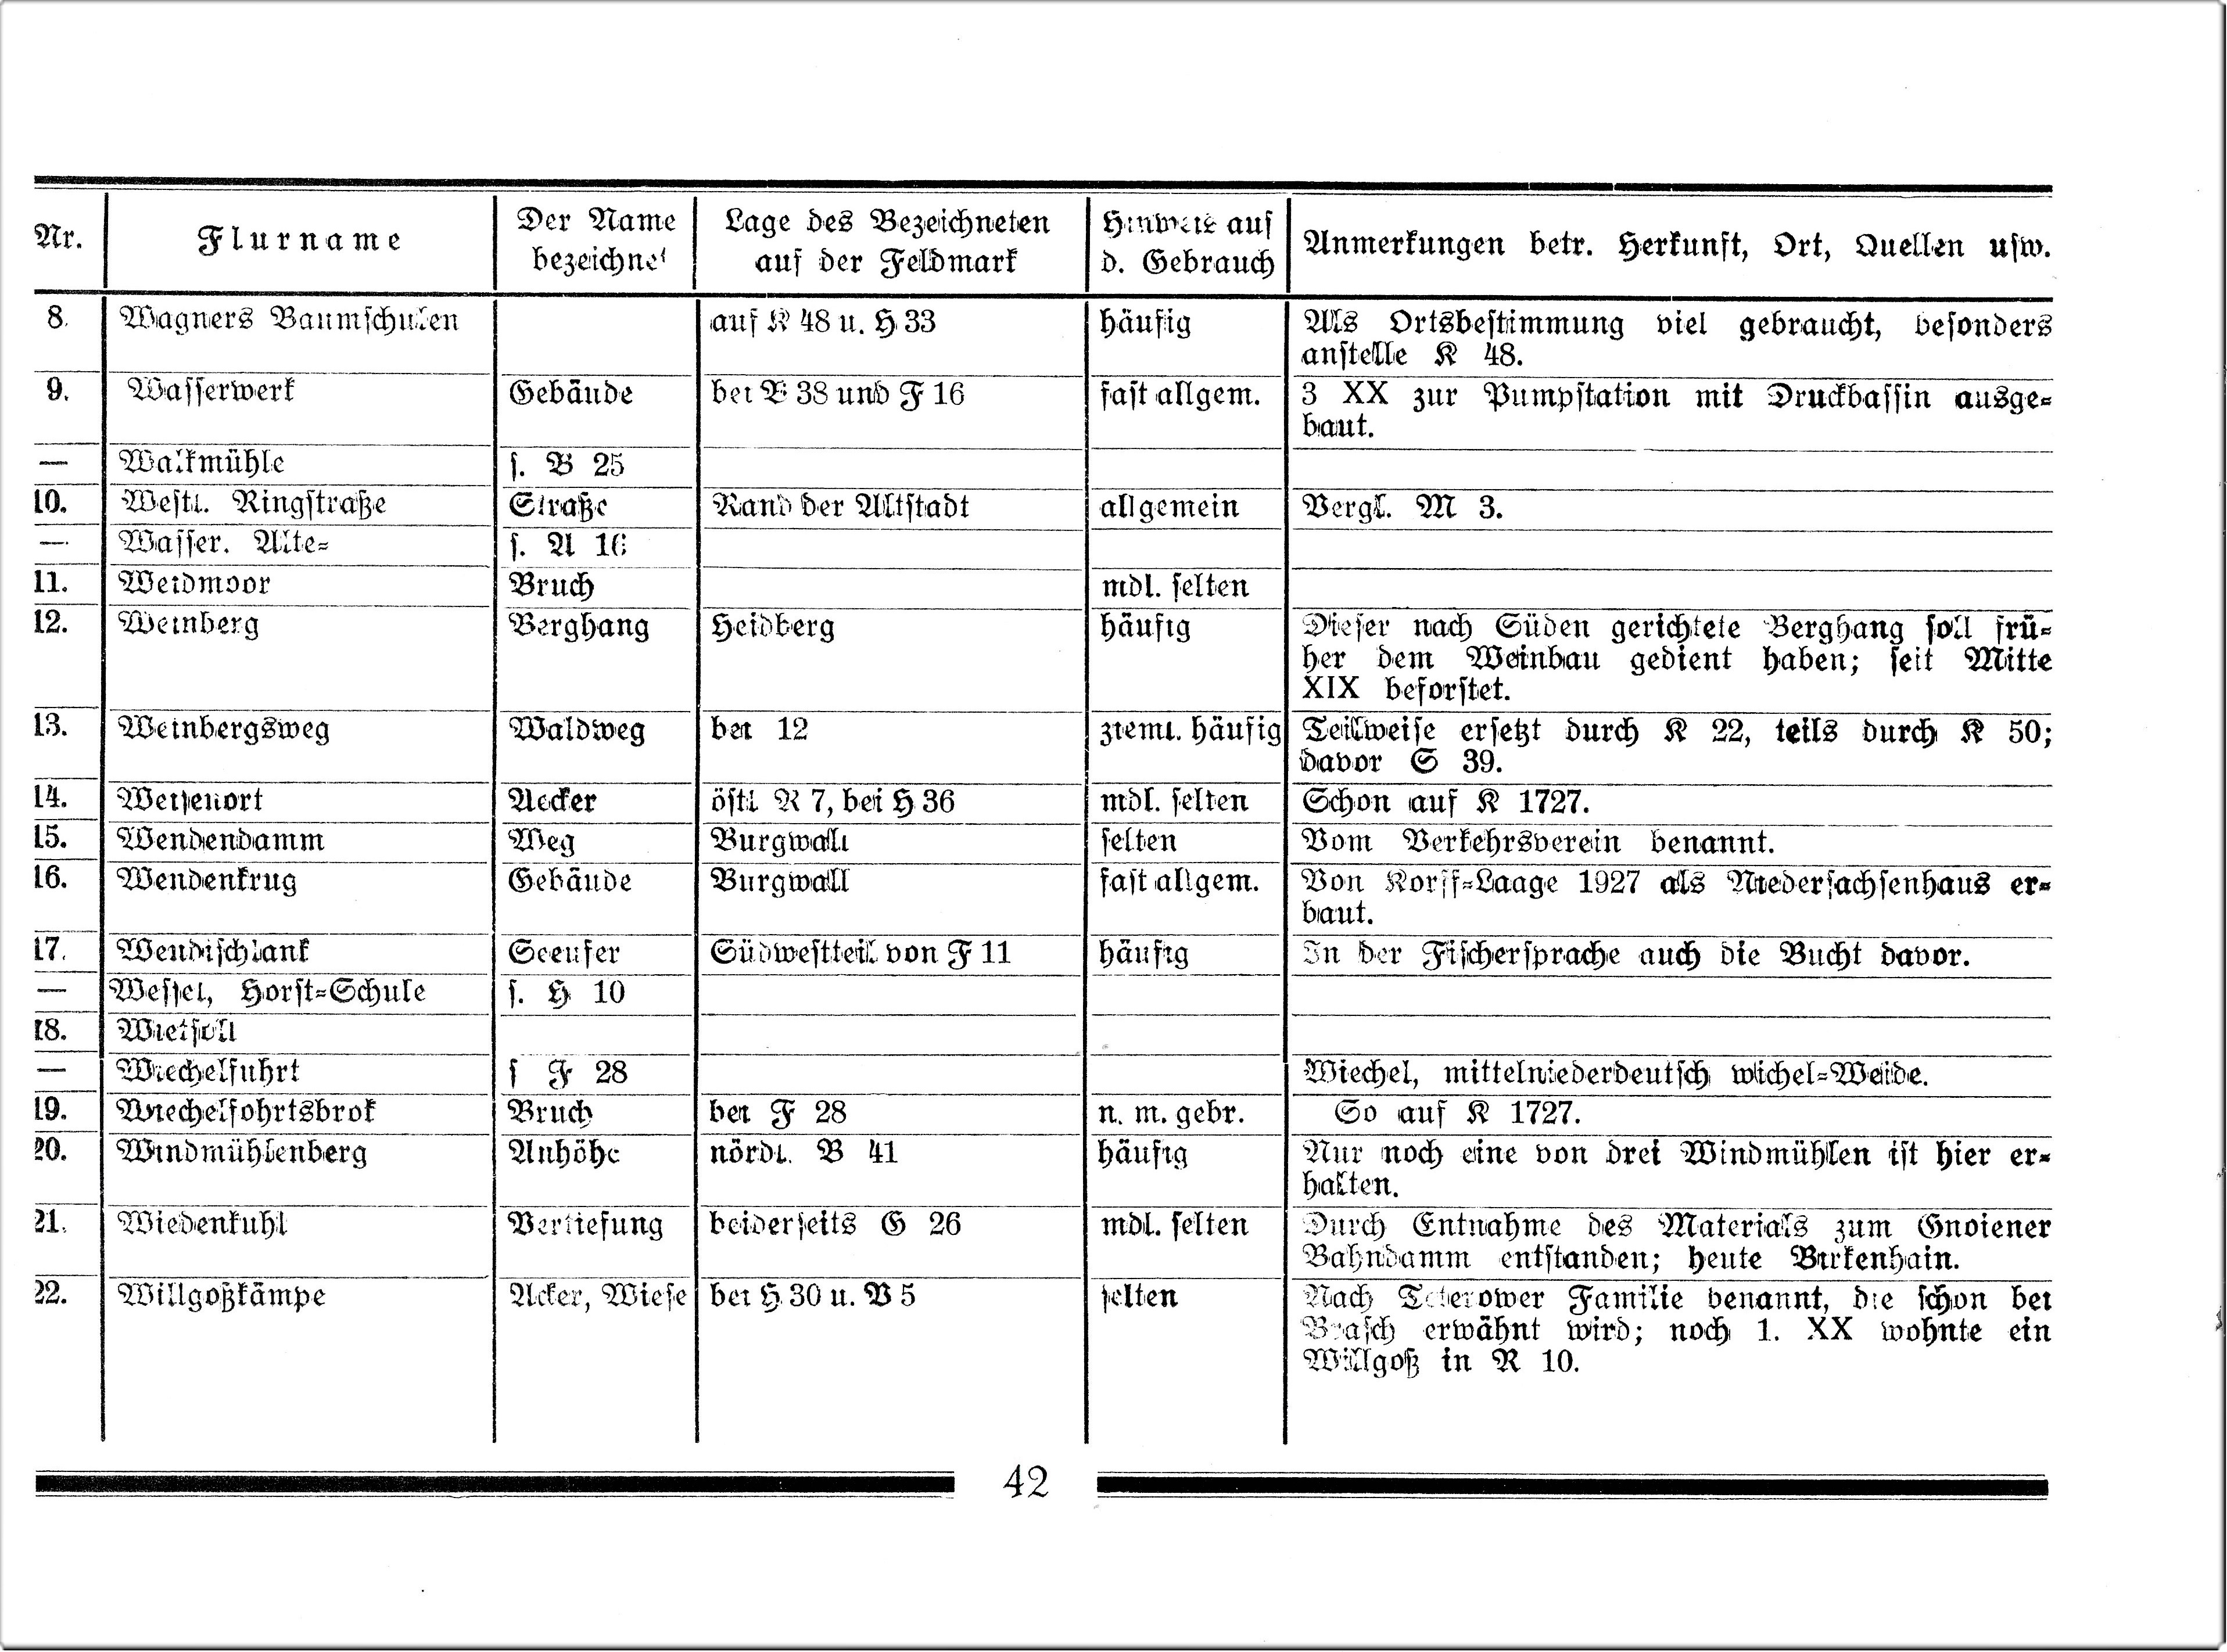 Nr. Flurname Der Name bezeichnet Lage des Bezeichneten auf der Feldmark Hinweis auf d. Gebrauch Anmerkungen betr. Herkunft, Ort, Quellen usw.
8. Wagners Baumschulen auf K 48 u. H 33 häufig Als Ortsbestimmung viel gebraucht, besonders
anstelle K 48.
9. Wasserwerk Gebäude bei B 38 und F 16 fast allgem. 3 XX zur Pumpstation mit Druckbassin ausge-
baut.
— Walkmühle s. B 25
10. Westl. Ringstraße Straße Rand der Altstadt allgemein Vergl. M 3.
— Wasser. Alte- s. A 16
11. Weidmoor Bruch mdl. selten
12. Weinberg Berghang Heidberg häufig Dieser nach Süden gerichtete Berghang soll frü-
her dem Weinbau gedient haben; seit Mitte
XIX beforstet.
13. Weinbergsweg Waldweg bei 12 zieml. häufig Teilweise ersetzt durch K 22, teils durch K 50;
davor S 39.
14. Weisenort Aecker östl R 7, bei H 36 mdl. selten Schon auf K 1727.
15. Wendendamm Weg Burgwall selten Vom Verkehrsverein benannt.
16. Wendenkrug Gebäude Burgwall fast allgem. Von Korff-Laage 1927 als Niedersachsenhaus er-
baut.
17. Wendischlank Seeufer Südwestteil von F 11 häufig In der Fischersprache auch die Bucht davor.
— Wessel, Horst-Schule s. H 10
18. Wietsoll
— Wiechelfuhrt s F 28 Wiechel, mittelniederdeutsch wichel-Weide.
19. Wiechelfohrtsbrok Bruch bei F 28 n. m. gebr. So auf K 1727.
20. Windmühlenberg Anhöhe nördl. B 41 häufig Nur noch eine von drei Windmühlen ist hier er-
halten.
21. Wiedenkuhl Vertiefung beiderseits G 26 mdl. selten Durch Entnahme des Materials zum Gnoiener
Bahndamm entstanden; heute Birkenhain.
22. Willgoßkämpe Acker, Wiese bei H 30 u. B 5 selten Nach Teterower Familie benannt, die schon bei
Brasch erwähnt wird; noch 1. XX wohnte ein
Willgoß in R 10.
42